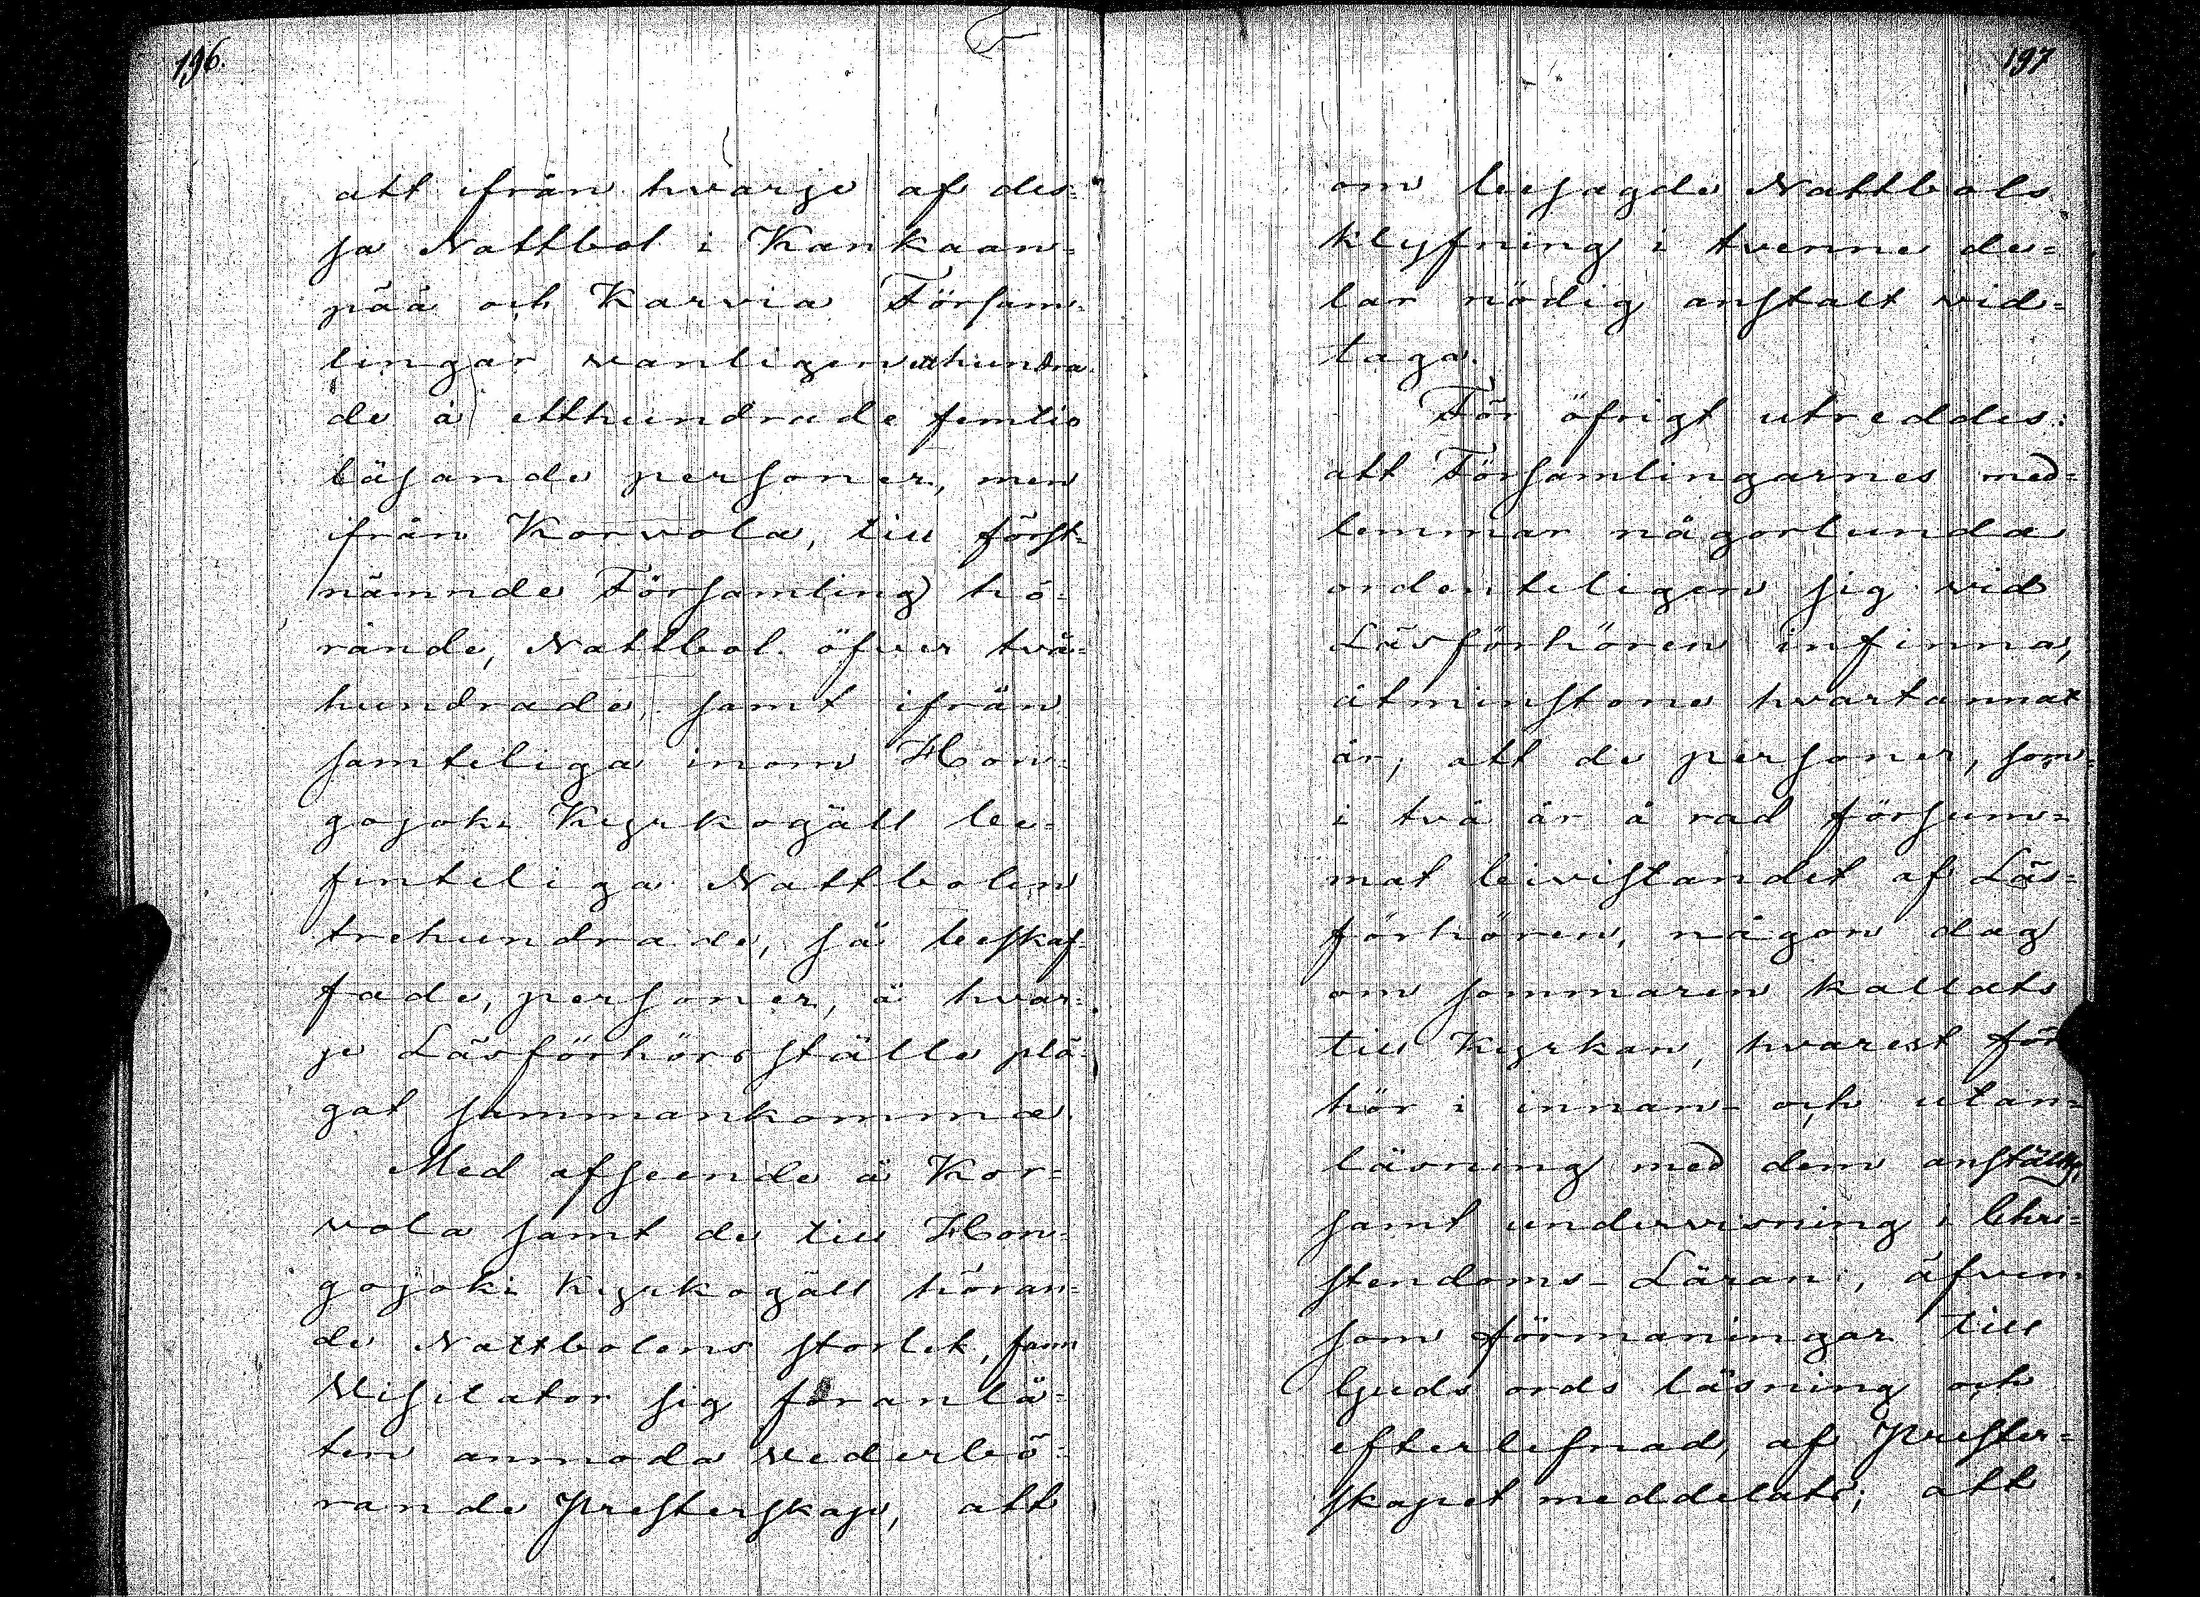 196.
att ifrån hvarje af des=
sa Nattbol i Kankaan=
pää och Karvia Försam=
lingar vanligen etthundra
de à etthundrade femtio
läsande personer, men
ifrån Korvola, till först=
nämnde Församling hö=
rande, Nattbol öfver två=
hundrade, samt ifrån
samteliga inom Hon=
gojoki Kyrkogäll be=
finteliga Nattbolen
trehundrade, så beskaf=
fade, personer, å hvar=
je Läsförhörsställe plä=
gat sammankomma.
Med afseende å Kor=
vola samt de till Hon=
gojoki Kyrkogäll höran=
de Nattbolens storlek, fann
Visitator sig föranlå=
ten anmoda vederbö=
rande Presterskap, att
197
om besagde Nattbols
klyfning i tvenne de=
lar nödig anstalt vid=
taga.
För öfrigt utreddes:
att Församlingarnes med=
lemmar någorlunda
ordenteligen sig vid
Läsförhören infinna,
åtminstone hvartannat
år; att de personer, som
i två år å rad försum=
mat beivistandet af Läs=
förhören, någon dag
om sommaren kallats
till Kyrkan, hvarest för
hör i innan- och utan=
läsning med dem anställts,
samt undervisning i Chri=
stendoms-Läran, äfven
som förmaningar till
Guds ords läsning och
efterlefnad, af Prester=
skapet meddelats; att